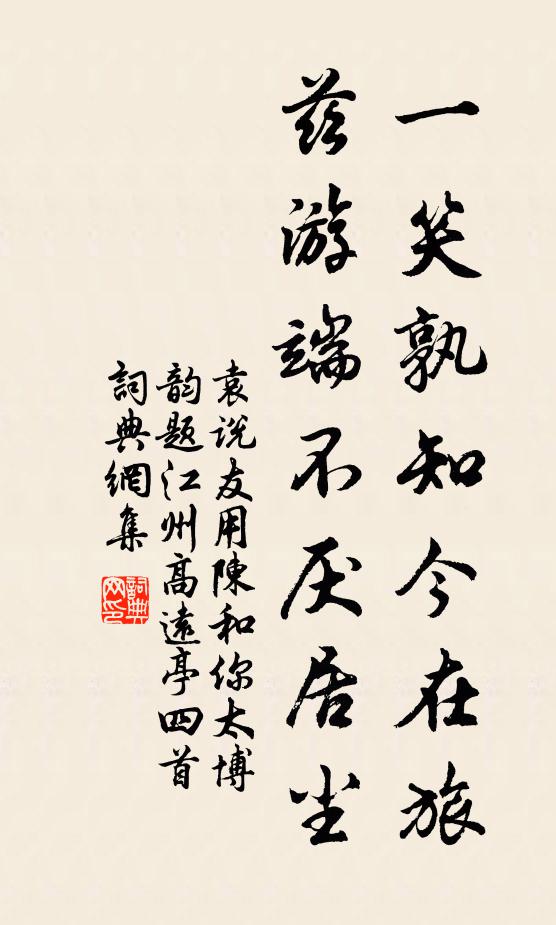 一笑孰知今在旅
茲游端不厌居尘
袁说友用陳和你太博
韵题江州高遠亭四首
詞典網集
詞典网印